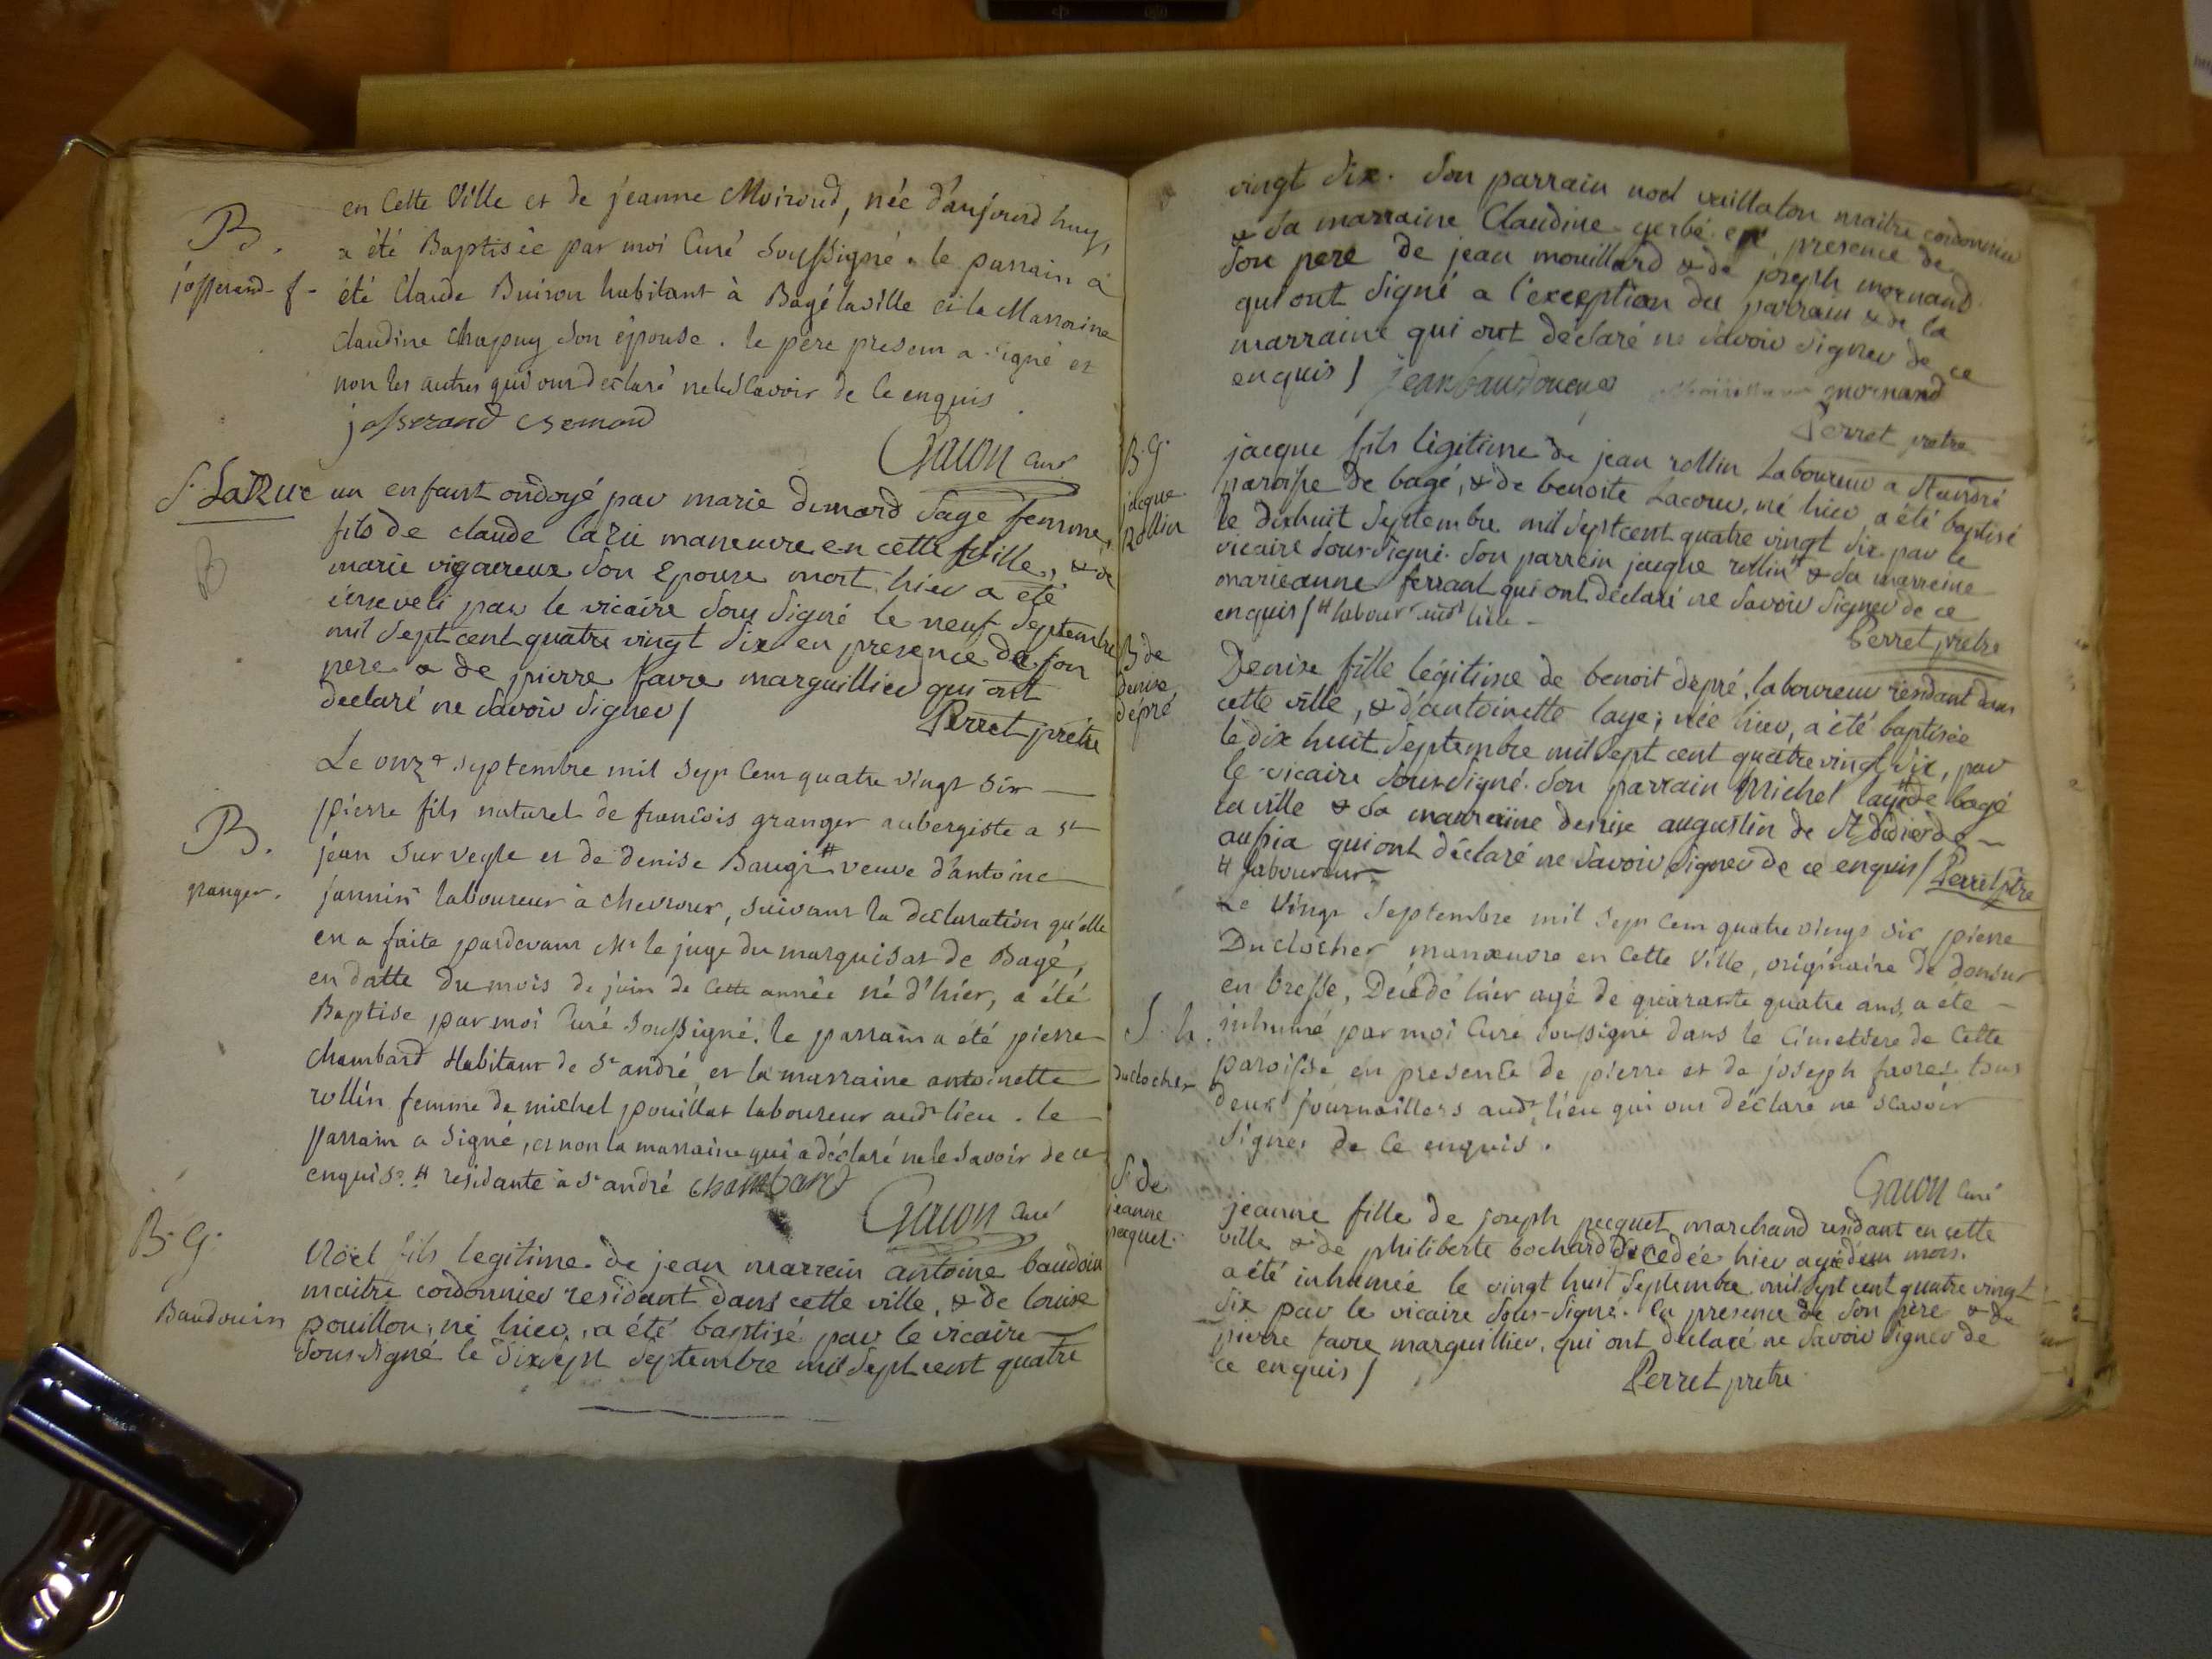 en cette Ville et de jeanne Moiroud, née d'aujourd huy,
B.
a été Baptisée par moi Curé Soussigné. le parrain a
josserand f.
été Claude Buiron habitant à Bagé laville et la Marraine
Claudine Chapuy son épouse. le père present a signé et
non les autres qui ont declaré ne le sçavoir de ce enquis
josserand
Gacon curé
S. LaRue
un enfant ondoyé par marie dimard sage femme,
fils de claude larue maneuvre en cette ville, & de
B
marie vigoureux son epouse mort hier a été
enseveli par le vicaire sous signé le neuf septembre
mil sept cent quatre vingt six en presence de son
pere & de pierre favre marguillier qui ont
declaré ne savoir signer /
Perret prêtre
Le onze septembre mil sept cent quatre vingt six
pierre fils naturel de francois granger aubergiste a st
B.
jean sur veyle et de denise Baugi # veuve d'antoine
granger.
jannin laboureur à chevroux, suivant la declaration qu'elle
en a faite pardevant Mr le juge du marquisat de Bagé,
en datte du mois de juin de cette année né d'hier, a été
Baptise par moi Curé soussigné. le parrain a été pierre
chambard Habitant de st andré et la marraine antoinette
rollin femme de michel pouillat laboureur aud lieu. le
parrain a signé, et non la marraine qui a déclaré ne le savoir de ce
enquise. # residante à st andré chambard
Gacon curé
B. G.
Noël fils legitime de jean marrein antoine baudoin
maitre cordonnier residant dans cette ville, & de louise
Baudouin
pouillon, né hier, a été baptisé par le vicaire
sous-signé le dix sept septembre mil sept cent quatre
vingt six. son parrain noel vaillaton maitre cordonnier
& sa marraine Claudine gerbé en presence de
son pere de jean mouillard & de joseph mornand
qui ont signé a l'exception du parrain & de la
marraine qui ont declaré ne savoir signer de ce
enquis / jean baudouin mornand
Perret pretre
B. G.
jacque
Rollin
jacque fils légitime de jean rollin Laboureur a st andré
paroisse de bagé, & de benoite Lacour, né hier, a été baptisé
le dixhuit septembre mil sept cent quatre vingt six par le
vicaire sous-signé. son parrein jacque rollin # & sa marreine
marieanne ferraat qui ont déclaré ne savoir signer de ce
enquis / # labourr aud lieu
Perret pretre
B de
denise
depré
Denise fille légitime de benoit depré, laboureur residant dans
cette ville, & d'antoinette laye; née hier, a été baptisée
le dix huit septembre mil sept cent quatre vingt six, par
le vicaire sous-signé. son parrain Michel laye # de bagé
la ville & sa marraine denise augustin de st didier de
aussia qui ont déclaré ne savoir signer de ce enquis / Perret ptre
# laboureur
Le vingt septembre mil sept cent quatre vingt six pierre
Duclocher manœuvre en cette Ville, originaire de domsur
en bresse, Décédé hier agé de quarante quatre ans, a été
S. h.
inhumé par moi Curé soussigné dans le Cimetiere de cette
duclocher
paroisse en presence de pierre et de joseph favre tous
deux journaillers audt lieu qui ont déclaré ne scavoir
signer de ce enquis.
Gacon curé
S de
jeanne
pacquet.
jeanne fille de joseph pacquet marchand residant en cette
ville & de philiberte bochard décedée hier agée d'un mois.
a été inhumée le vingt huit septembre mil sept cent quatre vingt
six par le vicaire sous-signé. En presence de son père & de
pierre favre marguillier, qui ont declaré ne savoir signer de
ce enquis /
Perret pretre